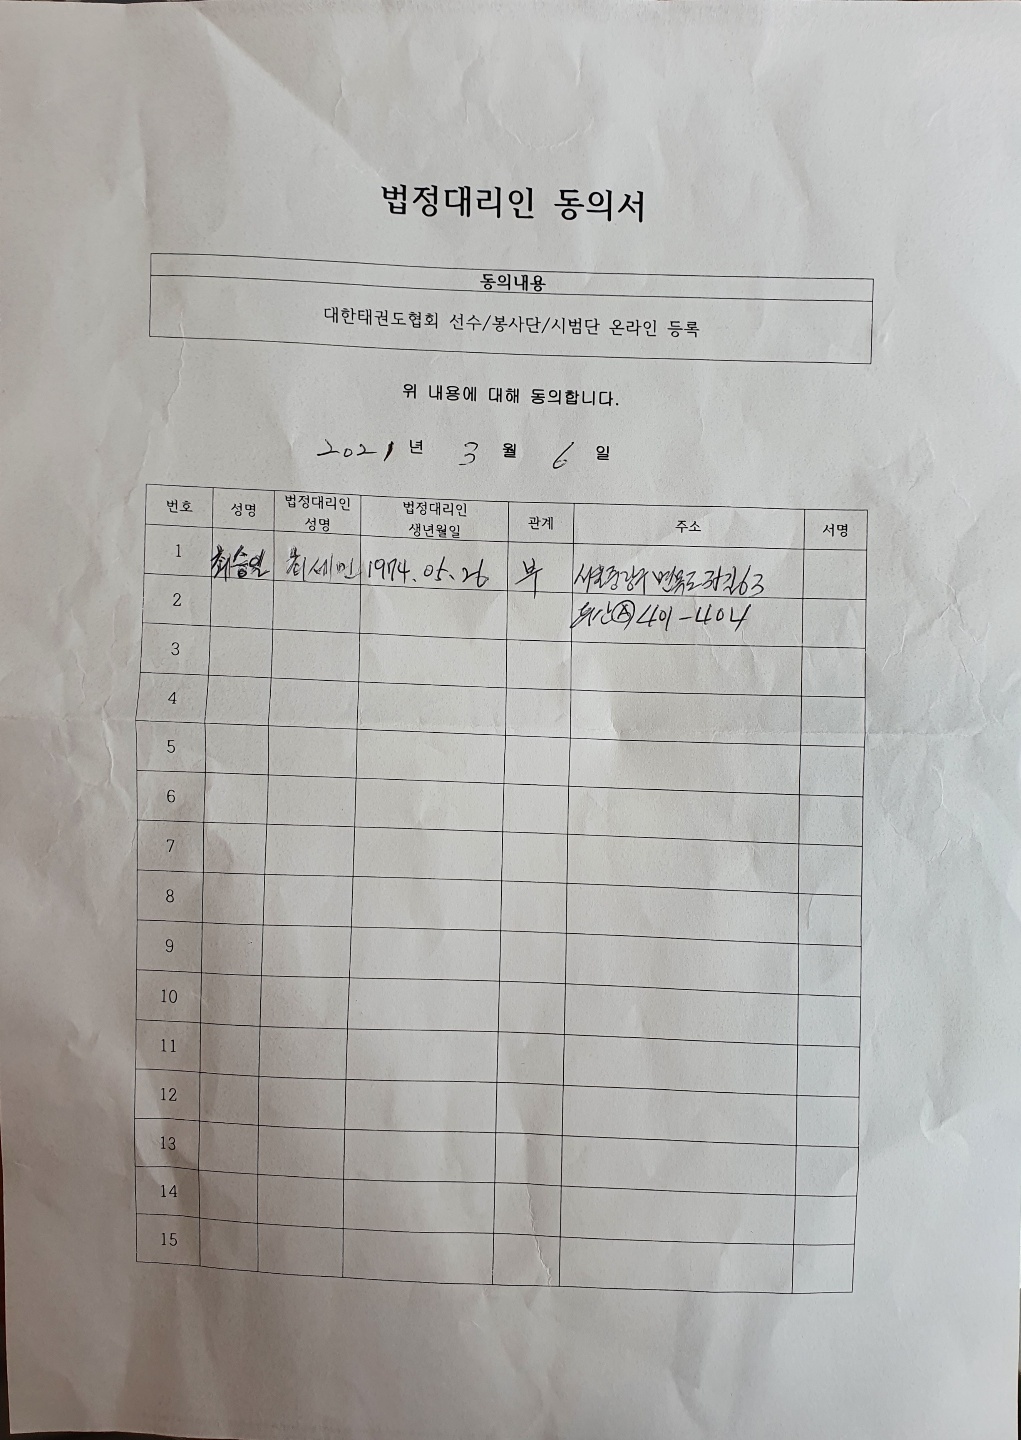 법정대리인 동의서
동의내용
대한태권도협회 선수/봉사단/시범단 온라인 등록
위 내용에 대해 동의합니다.
2021년 3월 6일
번호 성명 법정대리인 성명 법정대리인 생년월일 관계 주소 서명
1 최승일 최세민 1974. 05. 26 부 63
2 401-404
3
4
5
6
7
8
9
10
11
12
13
14
15